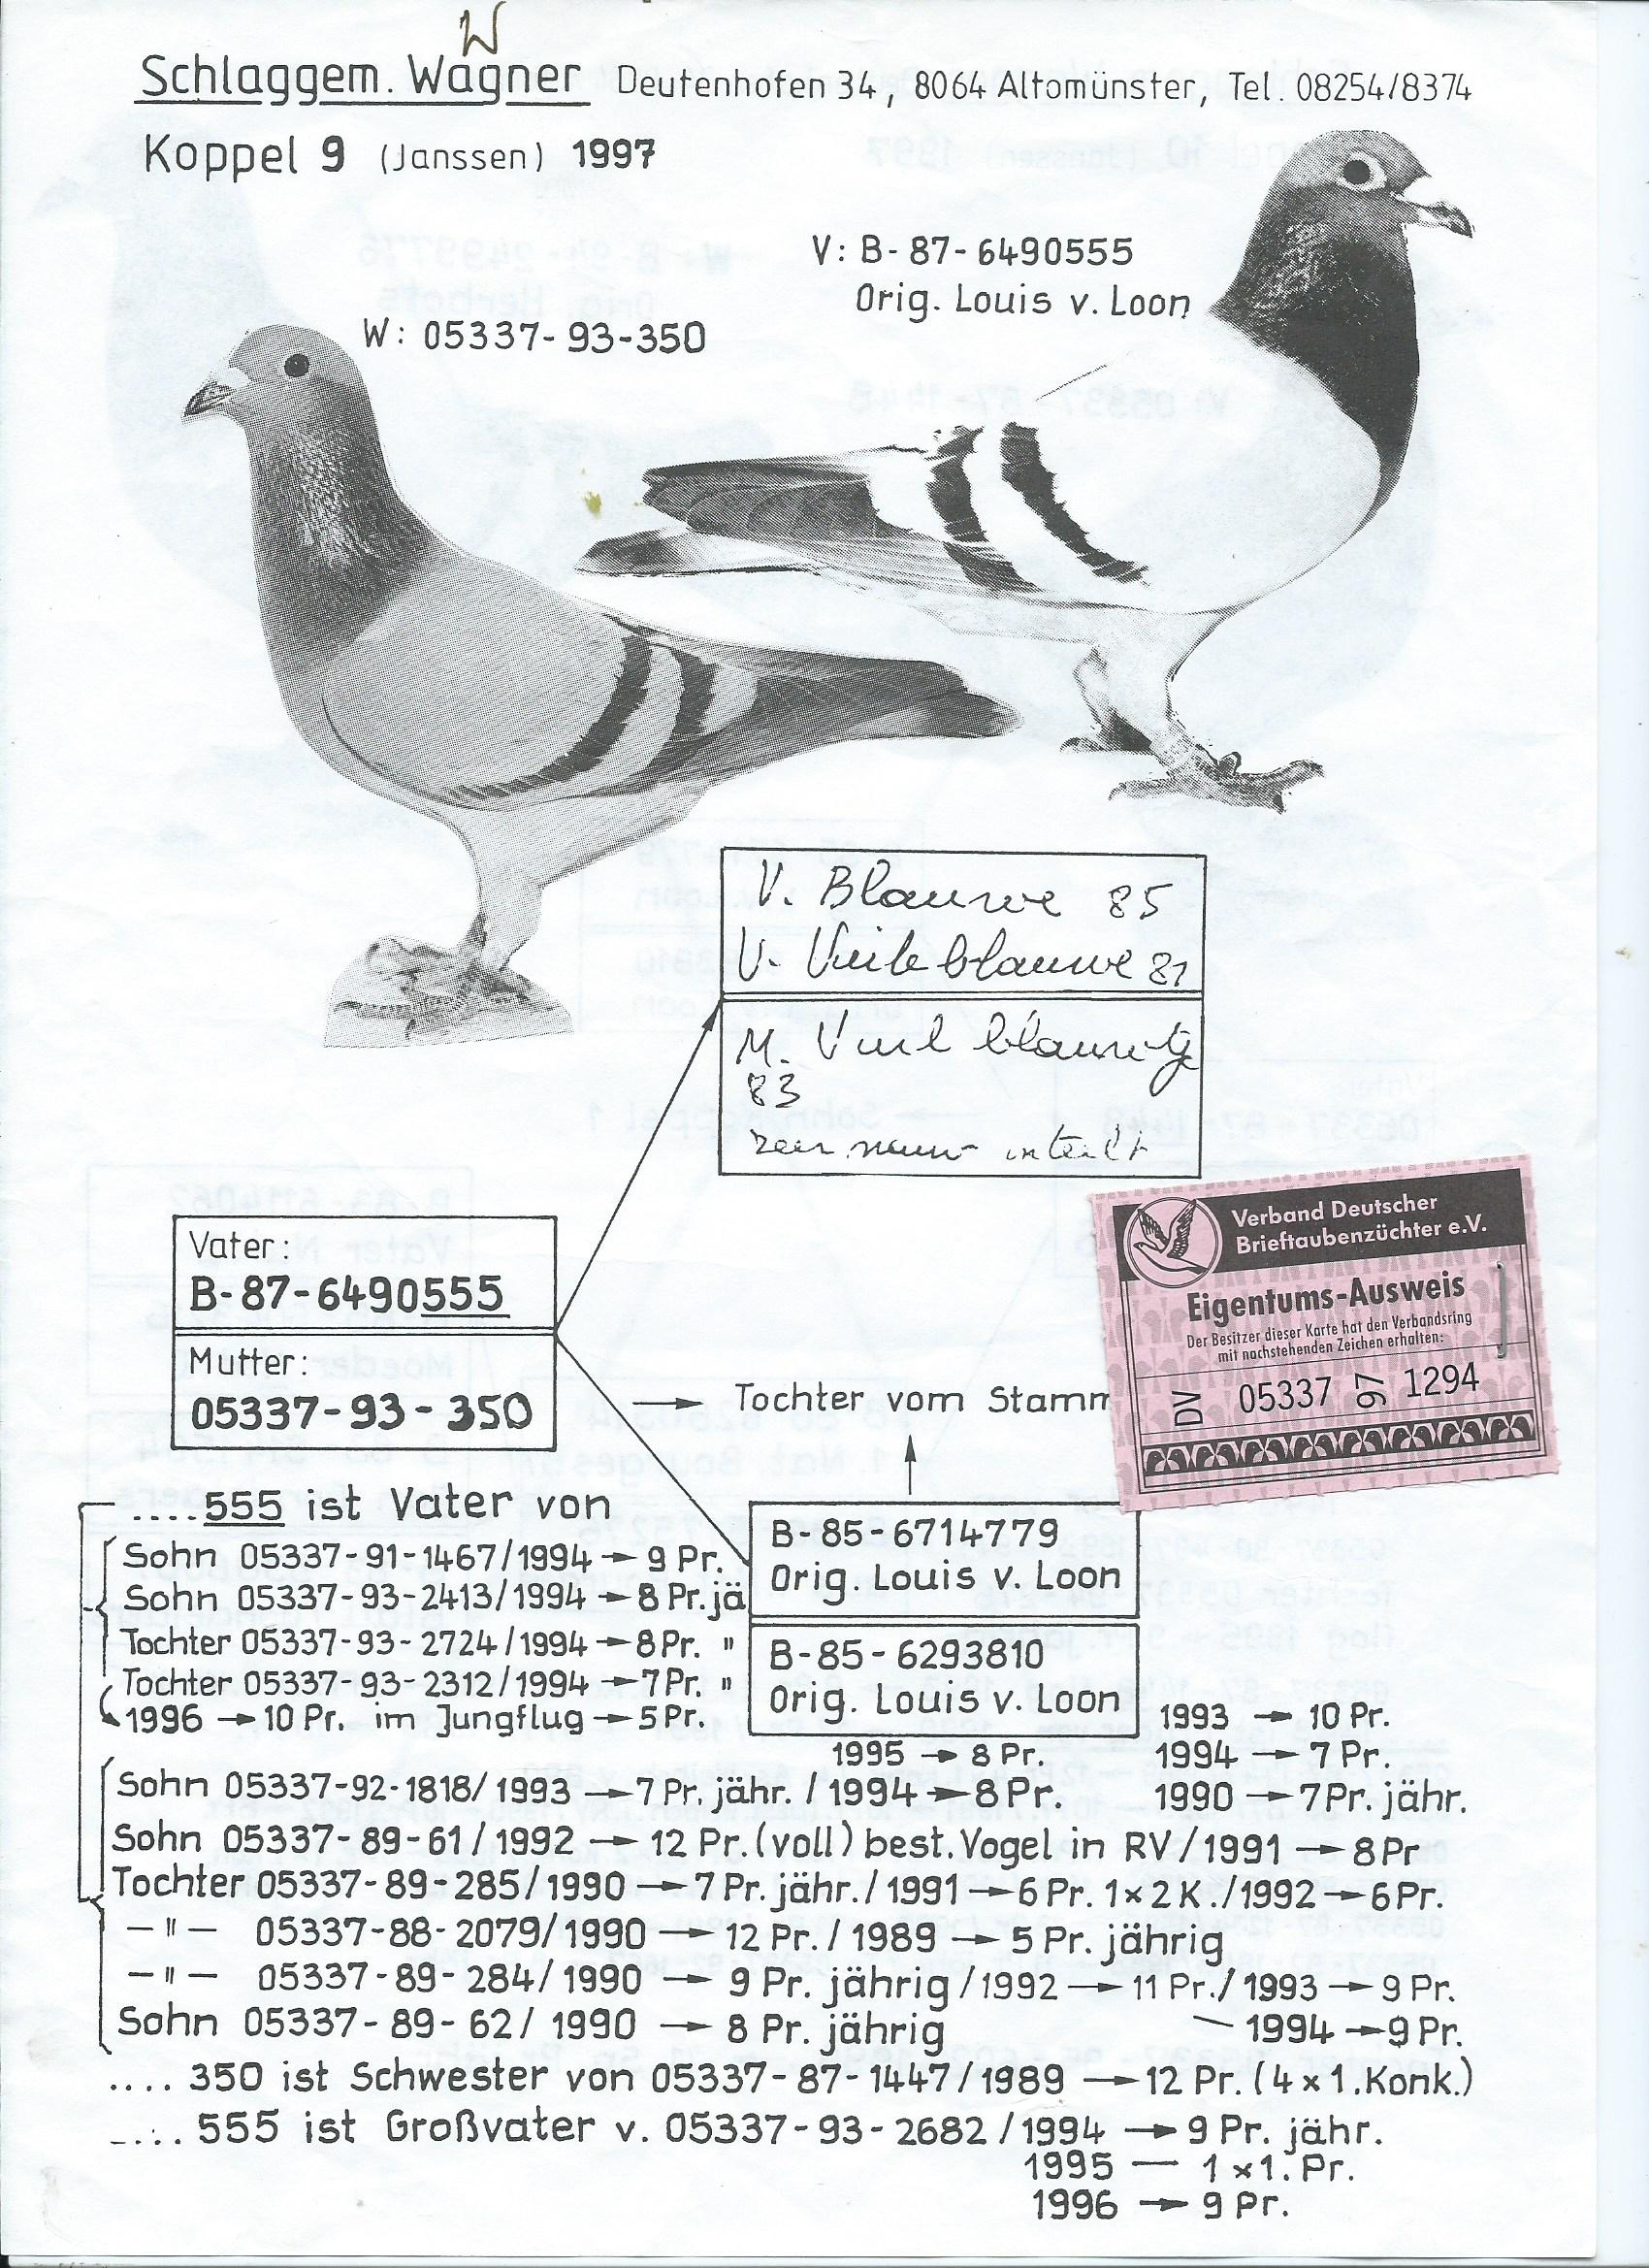 W
Schlaggem. Wagner Deutenhofen 34, 8064 Altomünster, Tel. 08254/8374
Koppel 9 (Janssen) 1997
V: B-87-6490555
Orig. Louis v. Loon
W: 05337-93-350
V. Blauwe 85
V. blauwe 81
M. blauwe
83
Vater:
B-87-6490555
Mutter:
05337-93-350
→ Tochter vom Stamm
Verband Deutscher
Brieftaubenzüchter e.V.
Eigentums-Ausweis
Der Besitzer dieser Karte hat den Verbandsring
mit nachstehenden Zeichen erhalten:
DV 05337 97 1294
B-85-6714779
Orig. Louis v. Loon
B-85-6293810
Orig. Louis v. Loon
....555 ist Vater von
Sohn 05337-91-1467/1994 → 9 Pr.
Sohn 05337-93-2413/1994 → 8 Pr. jä
Tochter 05337-93-2724/1994 → 8 Pr. "
Tochter 05337-93-2312/1994 → 7 Pr. "
1996 → 10 Pr. im Jungflug → 5 Pr.
1993 → 10 Pr.
1995 → 8 Pr.
1994 → 7 Pr.
Sohn 05337-92-1818/1993 → 7 Pr. jähr. / 1994 → 8 Pr.
1990 → 7 Pr. jähr.
Sohn 05337-89-61/1992 → 12 Pr. (voll) best. Vogel in RV/1991 → 8 Pr
Tochter 05337-89-285/1990 → 7 Pr. jähr./1991 → 6 Pr. 1x2 K./1992 → 6 Pr.
— " — 05337-88-2079/1990 → 12 Pr. / 1989 → 5 Pr. jährig
— " — 05337-89-284/1990 → 9 Pr. jährig/1992 → 11 Pr./1993 → 9 Pr.
Sohn 05337-89-62/1990 → 8 Pr. jährig
— 1994 → 9 Pr.
.... 350 ist Schwester von 05337-87-1447/1989 → 12 Pr. (4x1.Konk.)
.... 555 ist Großvater v. 05337-93-2682/1994 → 9 Pr. jähr.
1995 — 1x1. Pr.
1996 → 9 Pr.